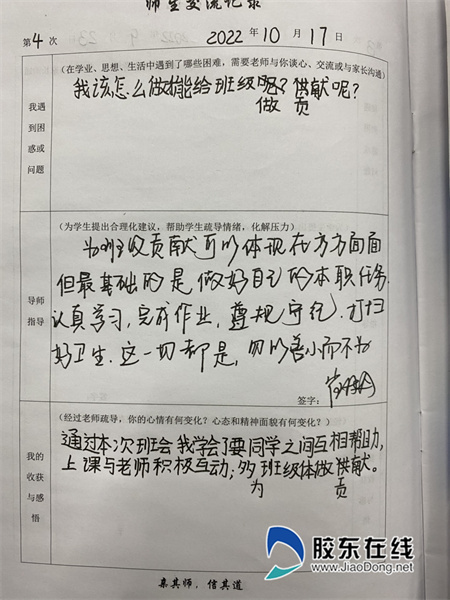 师生交流记录
第 4 次 2022 年 10 月 17 日
我遇到困惑或问题
(在学业、思想、生活中遇到了哪些困难,需要老师与你谈心、交流或与家长沟通)
我该怎么做才能给班级 供献呢?
做 贡
导师指导
(为学生提出合理化建议,帮助学生疏导情绪,化解压力)
为班级贡献可以体现在方方面面
但最基础的是做好自己的本职任务.
认真学习,完成作业,遵规守纪,打扫
好卫生.这一切都是,勿以善小而不为
签字:
我的收获与感悟
(经过老师疏导,你的心情有何变化?心态和精神面貌有何变化?)
通过本次班会我学会了要同学之间互相帮助,
上课与老师积极互动;多 班级体做供献。
为 贡
亲其师,信其道
胶东在线
www.JiaoDong.net